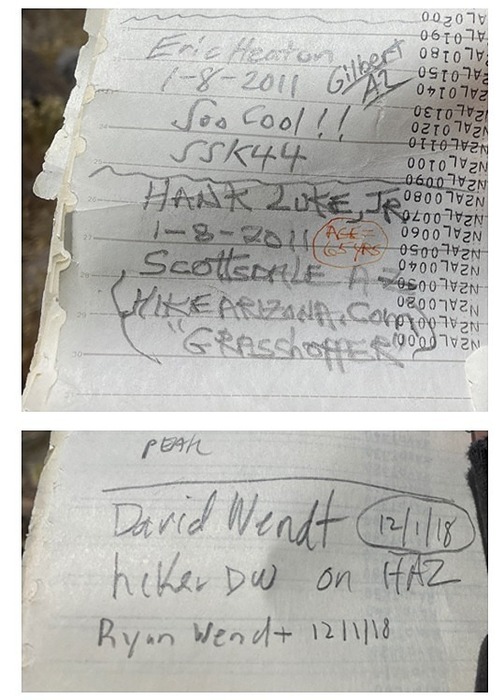 Eric Heaton
1-8-2011 Gilbert AZ
Soo Cool!!
SSK44
HANK LUKE, JR.
1-8-2011 AGE= 65 YRS
Scottsdale AZ
(HIKEARIZONA.COM)
"GRASSHOPPER"
N2AL0200
N2AL0190
N2AL0180
N2AL0150
N2AL0140
N2AL0130
N2AL0120
N2AL0110
N2AL0100
N2AL0090
N2AL0080
N2AL0070
N2AL0060
N2AL0050
N2AL0040
N2AL0030
N2AL0020
N2AL0010
N2AL0000
26
27
28
29
30
PEAK
David Wendt 12/1/18
hiker DW on HAZ
Ryan Wendt 12/1/18